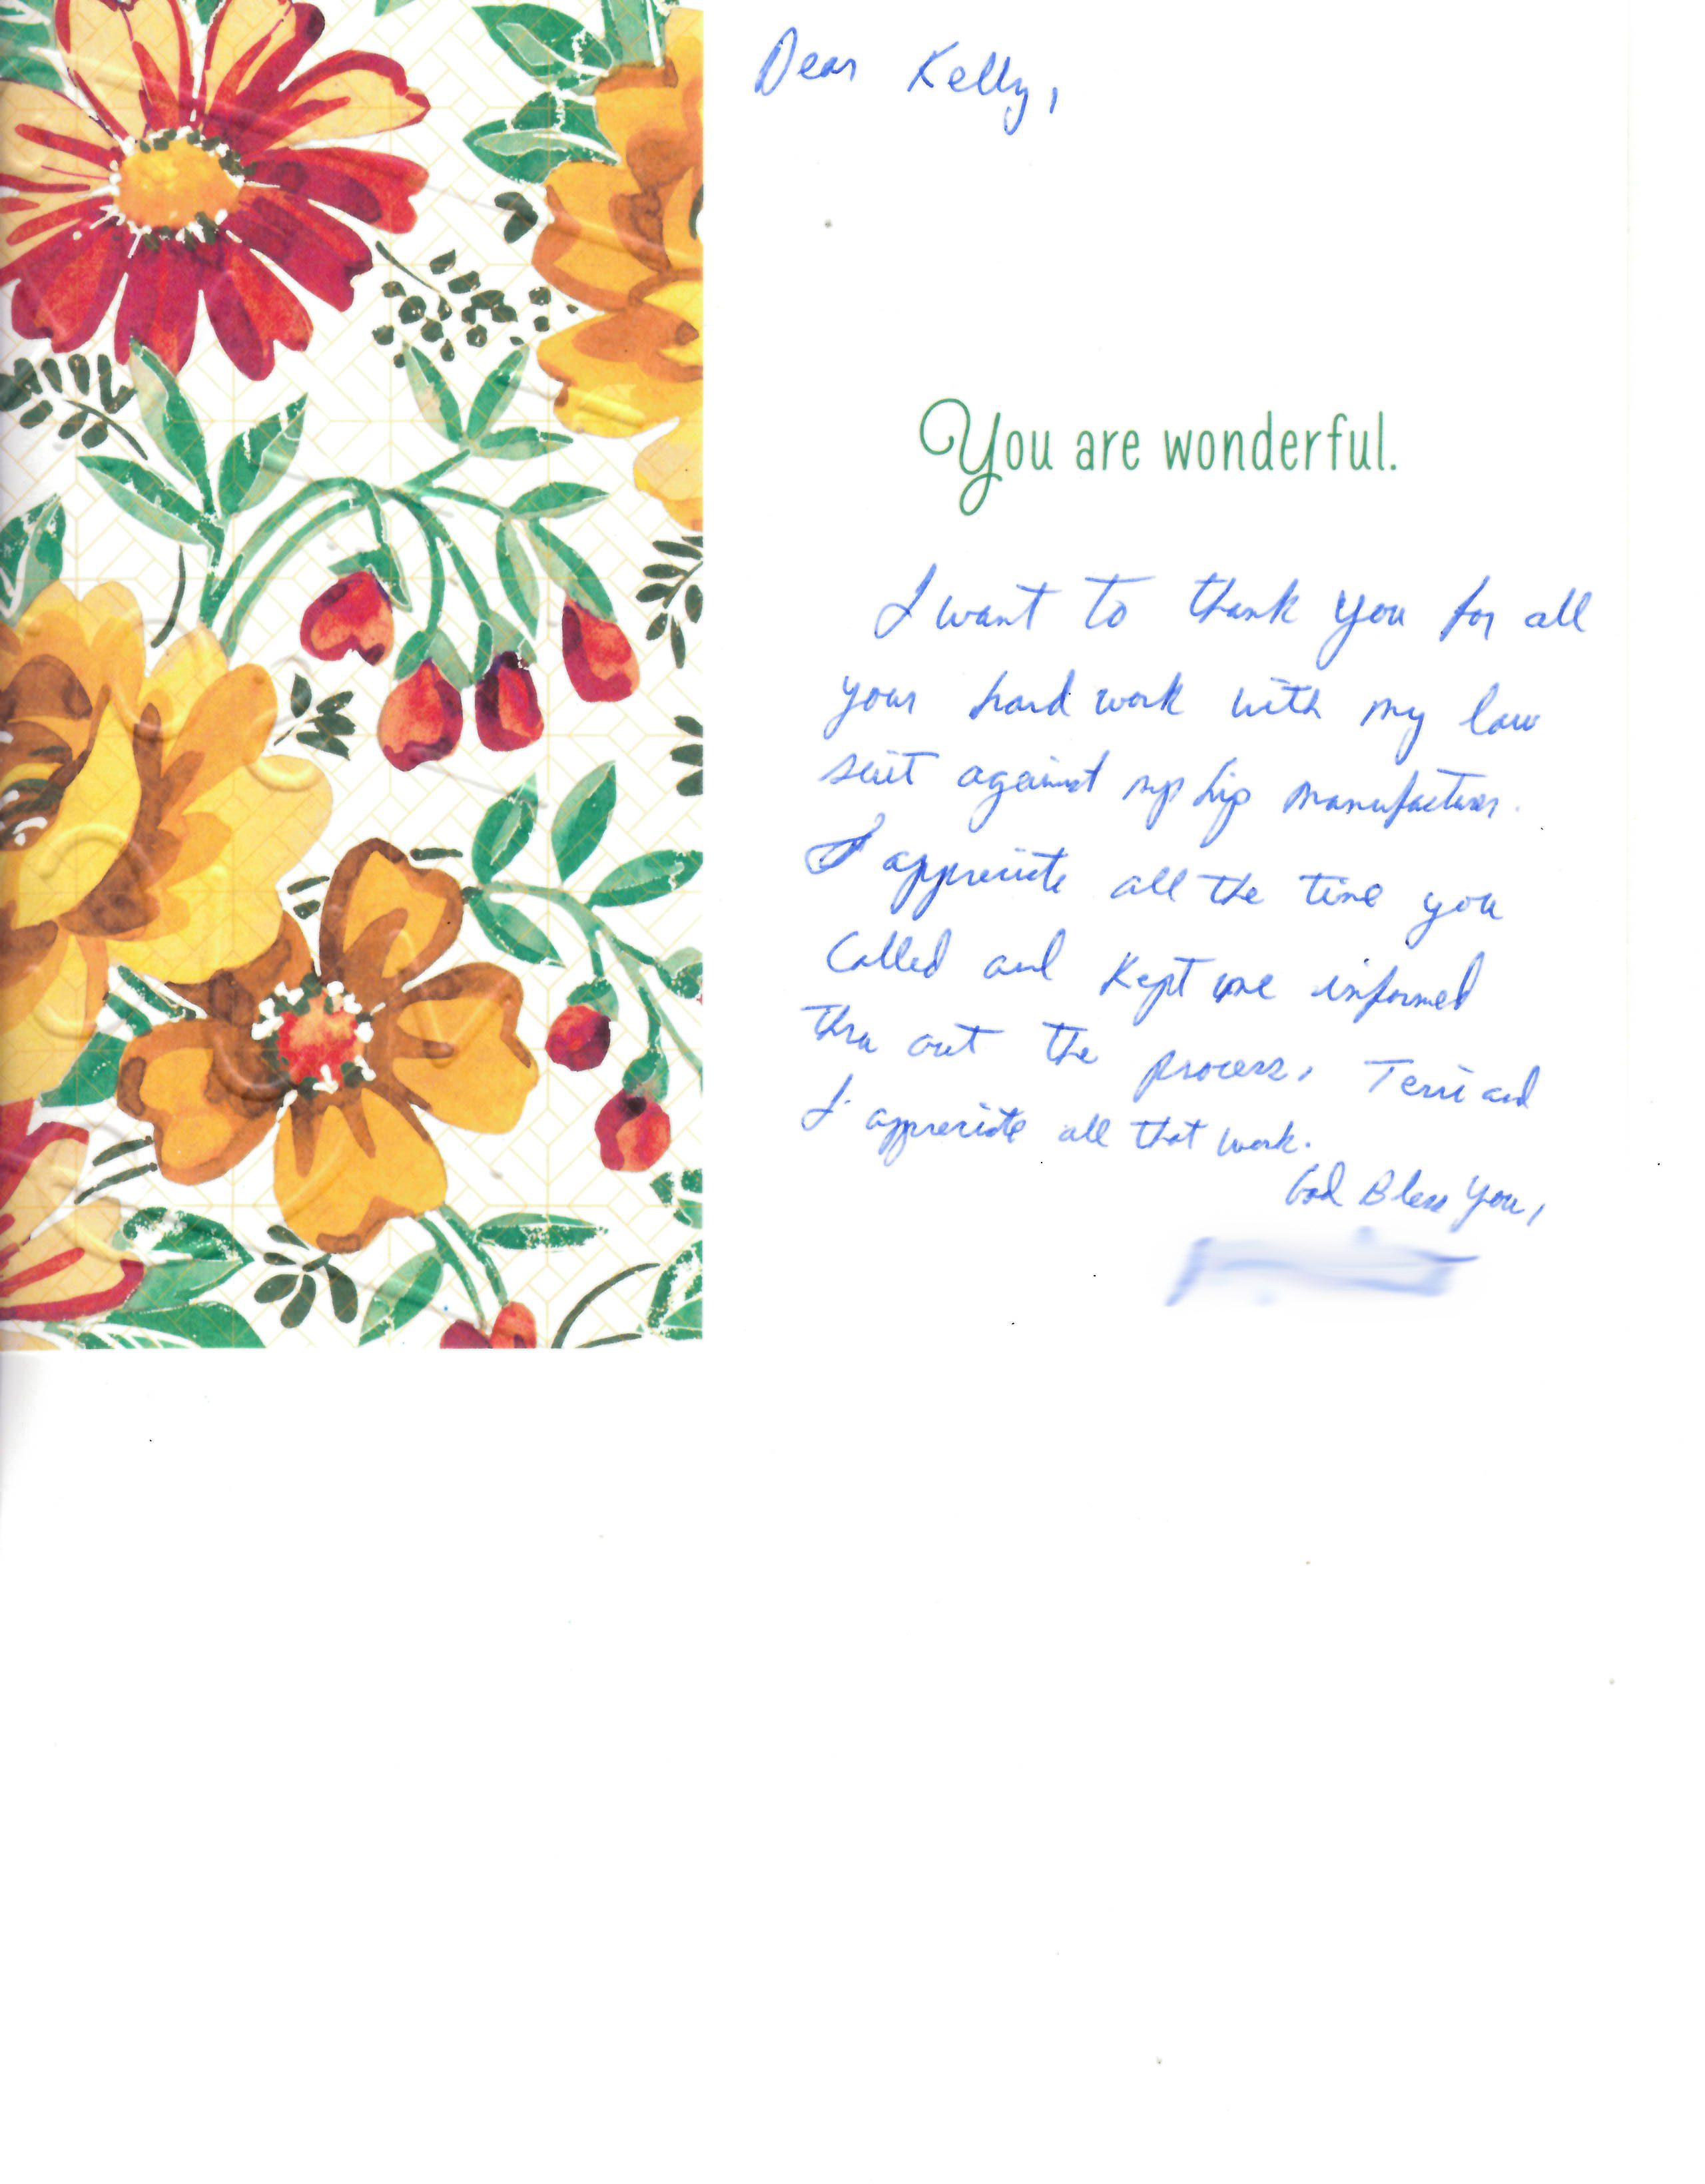 Dear Kelly,
You are wonderful.
I want to thank you for all
your hard work with my law
suit against my hip manufacturer.
I appreciate all the time you
called and kept me informed
thru out the process. Terri and
I appreciate all that work.
God Bless You,